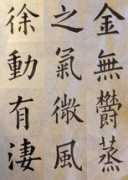 金無鬱蒸
之氣微風
徐動有淒